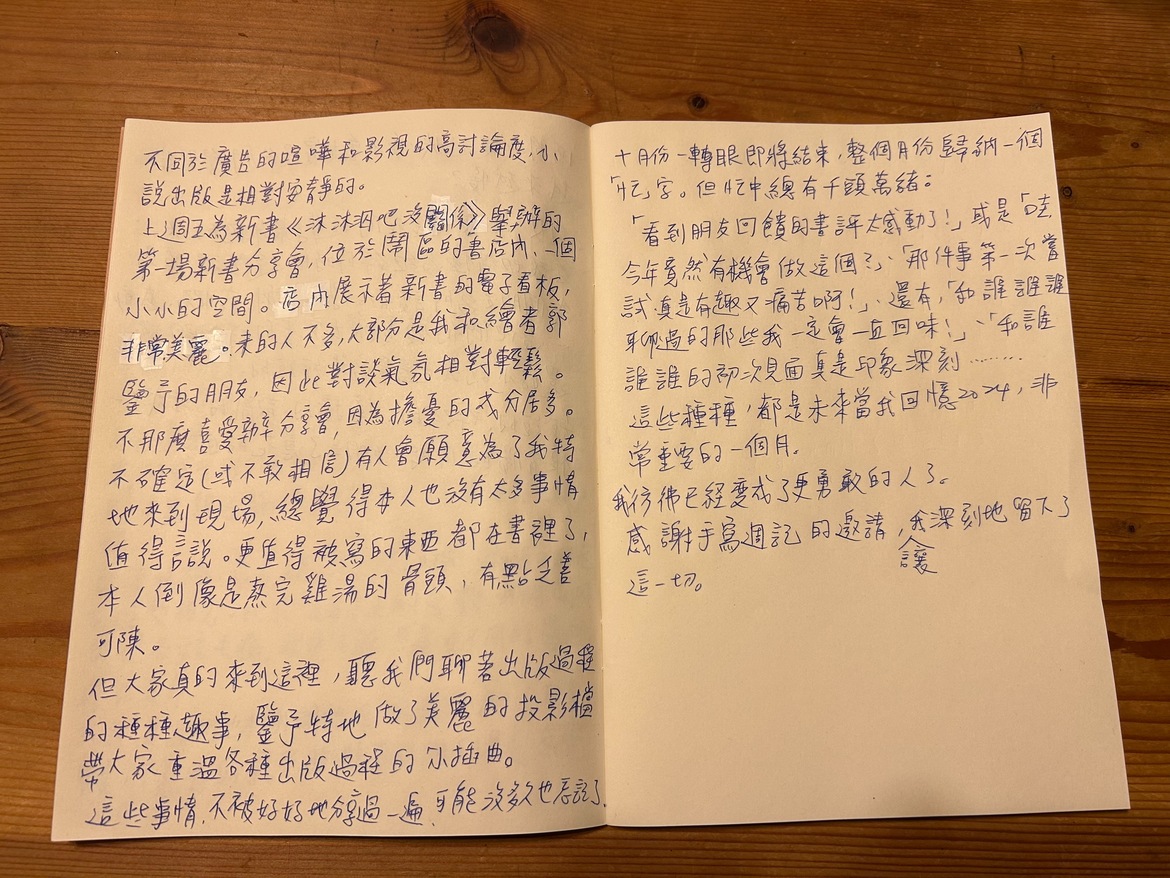 不同於廣告的喧嘩和影視的高討論度,小
說出版是相對安靜的。
上週五為新書《沐沐泅吧沒關係》舉辦的
第一場新書分享會,位於鬧區的書店內、一個
小小的空間。店內展示著新書的電子看板,
非常美麗。來的人不多,大部分是我和繪者郭
鑒予的朋友,因此對談氣氛相對輕鬆。
不那麼喜愛辦分享會,因為擔憂的成分居多。
不確定(或不敢相信)有人會願意為了我特
地來到現場,總覺得本人也沒有太多事情
值得言說。更值得被寫的東西都在書裡了,
本人倒像是熬完雞湯的骨頭,有點乏善
可陳。
但大家真的來到這裡,聽我們聊著出版過程
的種種趣事,鑒予特地做了美麗的投影檔
帶大家重溫各種出版過程的小插曲。
這些事情,不被好好地分享過一遍,可能沒多久也忘記了。
十月份一轉眼即將結束,整個月份歸納一個
「忙」字。但忙中總有千頭萬緒:
「看到朋友回饋的書評太感動了!」或是「哇
今年竟然有機會做這個?」、「那件事第一次嘗
試真是有趣又痛苦啊!」、還有,「和誰誰誰
聊過的那些我一定會一直回味!」、「和誰
誰誰的初次見面真是印象深刻………
這些種種,都是未來當我回憶2024,非
常重要的一個月。
我彷彿已經變成了更勇敢的人了。
感謝手寫週記的邀請,讓我深刻地留下了
這一切。